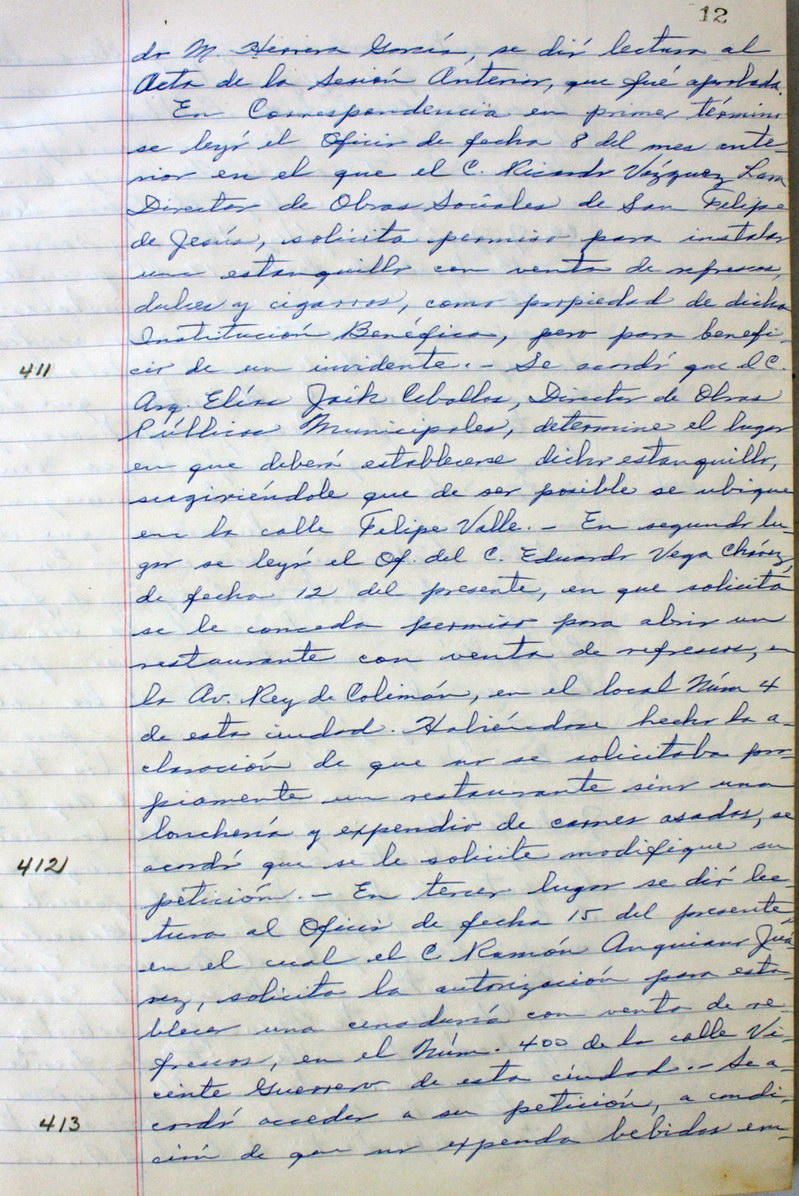 12
do M. Herrera García, se dió lectura al
Acta de la Sesión Anterior, que fué aprobada.
En Correspondencia en primer término
se leyó el Oficio de fecha 8 del mes ante-
rior en el que el C. Ricardo Vázquez Lara
Director de Obras Sociales de San Felipe
de Jesús, solicita permiso para instalar
un estanquillo con venta de refrescos,
dulces y cigarros, como propiedad de dicha
Institución Benéfica, pero para benefi-
411 cio de un invidente.- Se acordó que el C.
Arq. Elías Jaik Ceballos, Director de Obras
Públicas Municipales, determine el lugar
en que deberá establecerse dicho estanquillo,
sugiriéndole que de ser posible se ubique
en la calle Felipe Valle.- En segundo lu-
gar se leyó el Of. del C. Eduardo Vega Chávez,
de fecha 12 del presente, en que solicita
se le conceda permiso para abrir un
restaurante con venta de refrescos, en
la Av. Rey de Colimán, en el local Núm 4
de esta ciudad. Habiéndose hecho la a-
claración de que no se solicitaba pro-
piamente un restaurante sino una
lonchería y expendio de carnes asadas, se
412 acordó que se le solicite modifique su
petición.- En tercer lugar se dió lec-
tura al Oficio de fecha 15 del presente,
en el cual el C Ramón Anguiano Juá-
rez, solicita la autorización para esta-
blecer una cenaduría con venta de re-
frescos, en el Núm. 400 de la calle Vi-
cente Guerrero de esta ciudad.- Se a-
413 cordó acceder a su petición, a condi-
ción de que no expenda bebidas em-